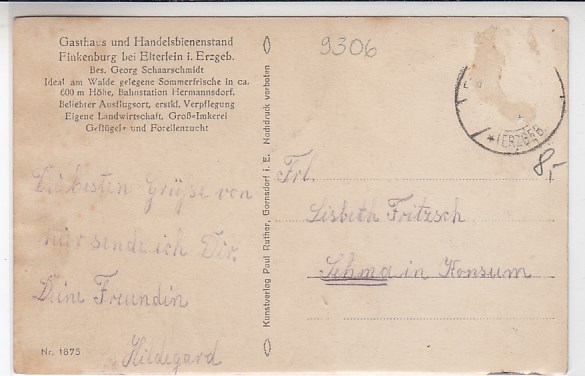 Gasthaus und Handelsbienenstand
Finkenburg bei Elterlein i. Erzgeb.
Bes. Georg Schaarschmidt
Ideal am Walde gelegene Sommerfrische in ca.
600 m Höhe, Bahnstation Hermannsdorf.
Beliebter Ausflugsort, erstkl. Verpflegung
Eigene Landwirtschaft, Groß-Imkerei
Geflügel- und Forellenzucht
Die besten Grüße von
hier sende ich Dir
Deine Freundin
Hildegard
Nr. 1875
Kunstverlag Paul Ruther, Gornsdorf i. E. Nachdruck verboten
9306
(ERZGEB.
8,-
Frl.
Lisbeth Fritzsch
Sehma in Konsum